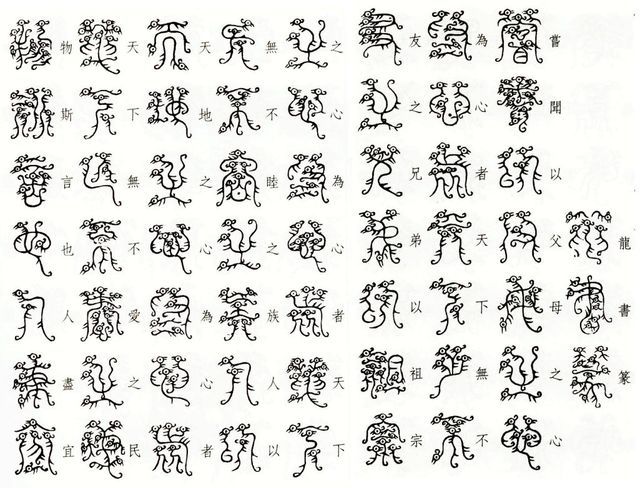 龍書篆
嘗聞以父母之心
為心者天下無不
友之兄弟以祖宗
之心為心者天下
無不睦之族人以
天地之心為心者
天下無不愛之民
物斯言也人盡宜